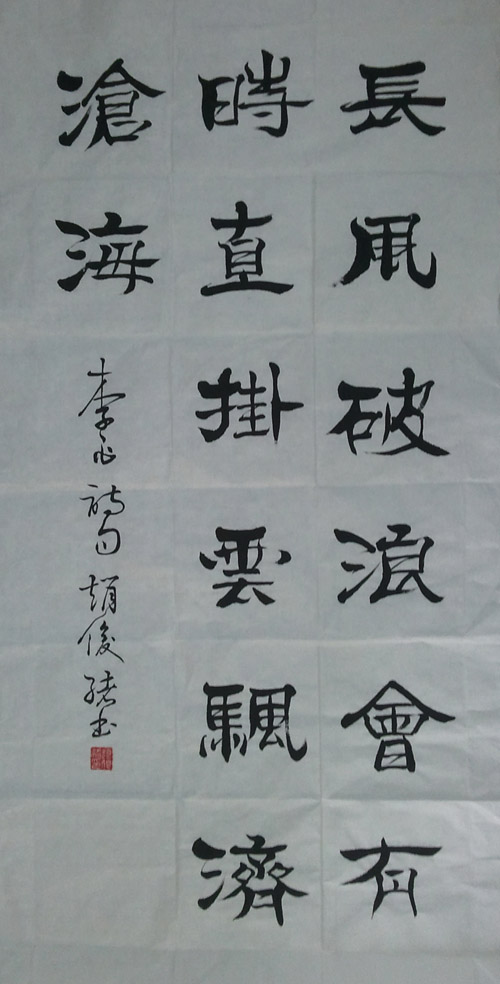 長風破浪會有
時直掛雲颿濟
滄海
李白詩句 趙俊緒書